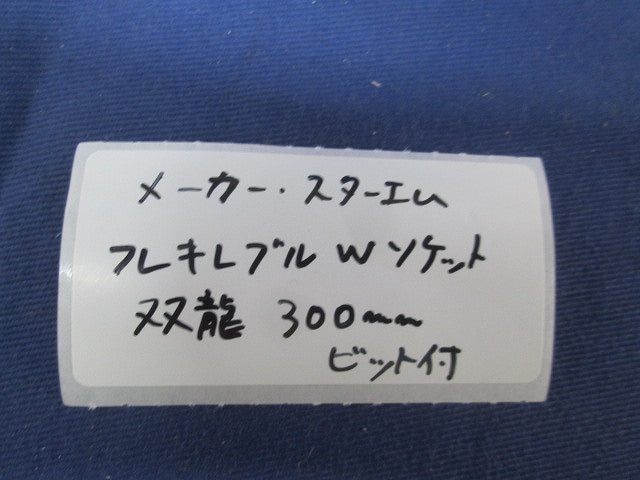 メーカー・スターエム
フレキレブル W ソケット
双龍 300mm
ビット付